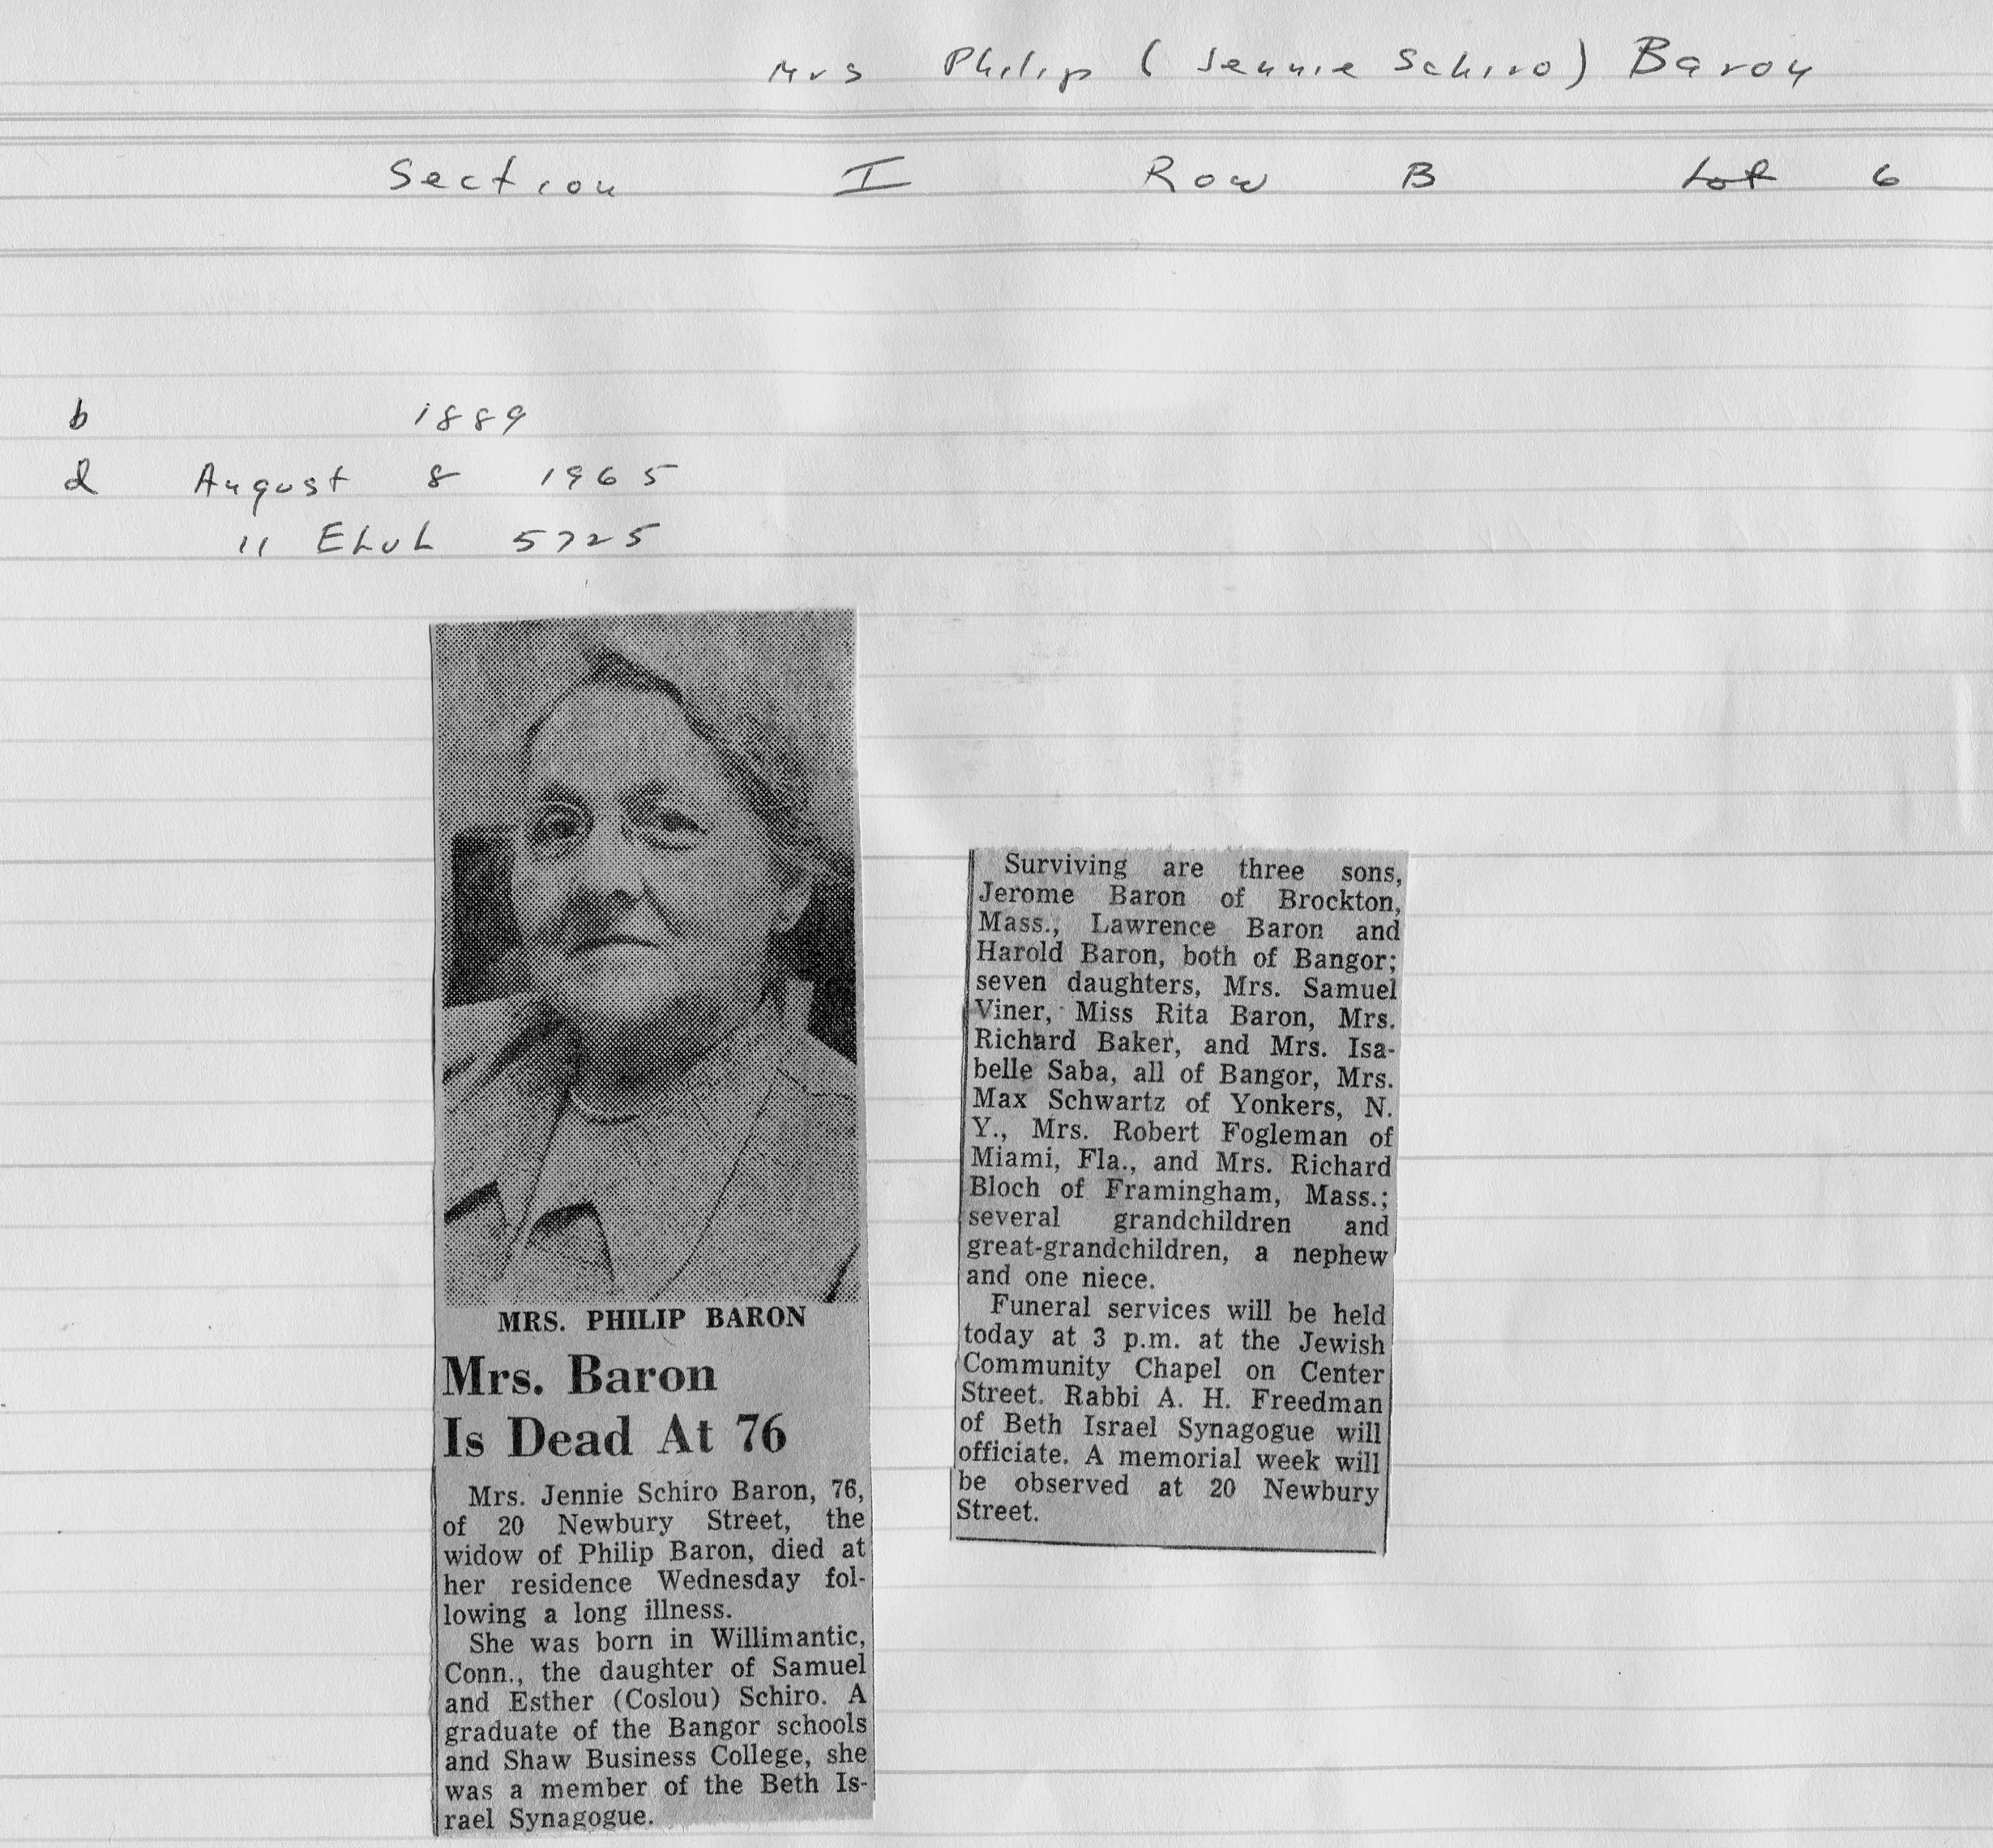 Mrs Philip (Jennie Schiro) Baron
Section I Row B Lot 6
b 1889
d August 8 1965
11 ELUL 5725
MRS. PHILIP BARON
Mrs. Baron
Is Dead At 76
Mrs. Jennie Schiro Baron, 76,
of 20 Newbury Street, the
widow of Philip Baron, died at
her residence Wednesday fol-
lowing a long illness.
She was born in Willimantic,
Conn., the daughter of Samuel
and Esther (Coslou) Schiro. A
graduate of the Bangor schools
and Shaw Business College, she
was a member of the Beth Is-
rael Synagogue.
Surviving are three sons,
Jerome Baron of Brockton,
Mass., Lawrence Baron and
Harold Baron, both of Bangor;
seven daughters, Mrs. Samuel
Viner, Miss Rita Baron, Mrs.
Richard Baker, and Mrs. Isa-
belle Saba, all of Bangor, Mrs.
Max Schwartz of Yonkers, N.
Y., Mrs. Robert Fogleman of
Miami, Fla., and Mrs. Richard
Bloch of Framingham, Mass.;
several grandchildren and
great-grandchildren, a nephew
and one niece.
Funeral services will be held
today at 3 p.m. at the Jewish
Community Chapel on Center
Street. Rabbi A. H. Freedman
of Beth Israel Synagogue will
officiate. A memorial week will
be observed at 20 Newbury
Street.